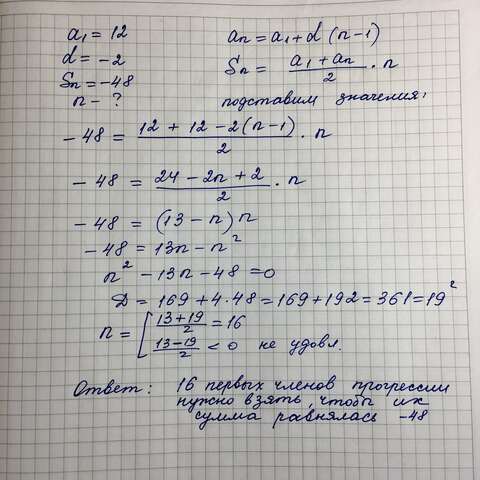 a₁ = 12    aₙ = a₁ + d (n-1)
d = -2    Sₙ = (a₁ + aₙ)/2 · n
Sₙ = -48
n - ?    подставим значения:
-48 = (12 + 12 - 2(n-1))/2 · n
-48 = (24 - 2n + 2)/2 · n
-48 = (13 - n) n
-48 = 13n - n²
n² - 13n - 48 = 0
D = 169 + 4·48 = 169 + 192 = 361 = 19²
n = [ (13+19)/2 = 16
(13-19)/2 < 0 не удовл.
Ответ: 16 первых членов прогрессии
нужно взять, чтобы их
сумма равнялась -48